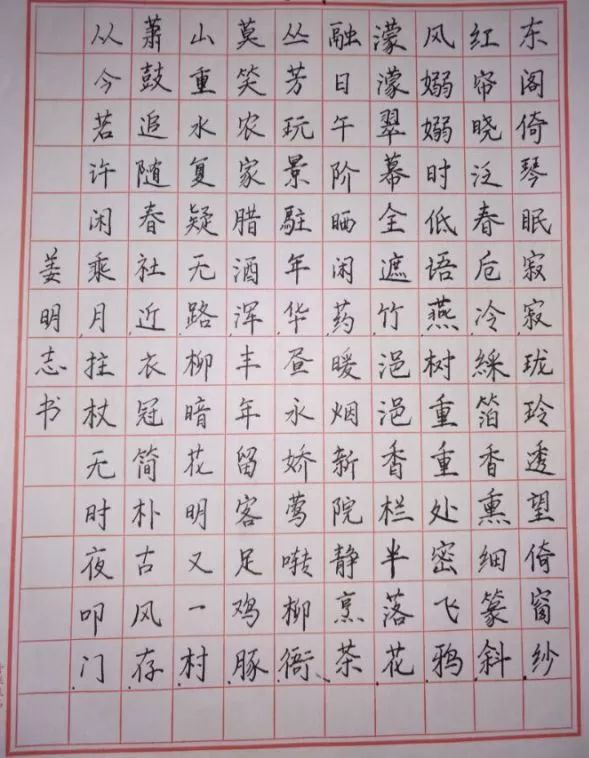 东阁倚琴眠寂寂，珑玲透望倚窗纱。
红帘晓泛春卮冷，綵箔香熏细篆斜。
风嫋嫋时低语燕，树重重处密飞鸦。
濛濛翠幕全遮竹，浥浥香栏半落花。
融日午阶晒闲药，暖烟新院静烹茶。
丛芳玩景駐年华，昼永娇莺啭柳衙。
莫笑农家腊酒浑，丰年留客足鸡豚。
山重水复疑无路，柳暗花明又一村。
萧鼓追随春社近，衣冠简朴古风存。
从今若许闲乘月，拄杖无时夜叩门。
姜明志书